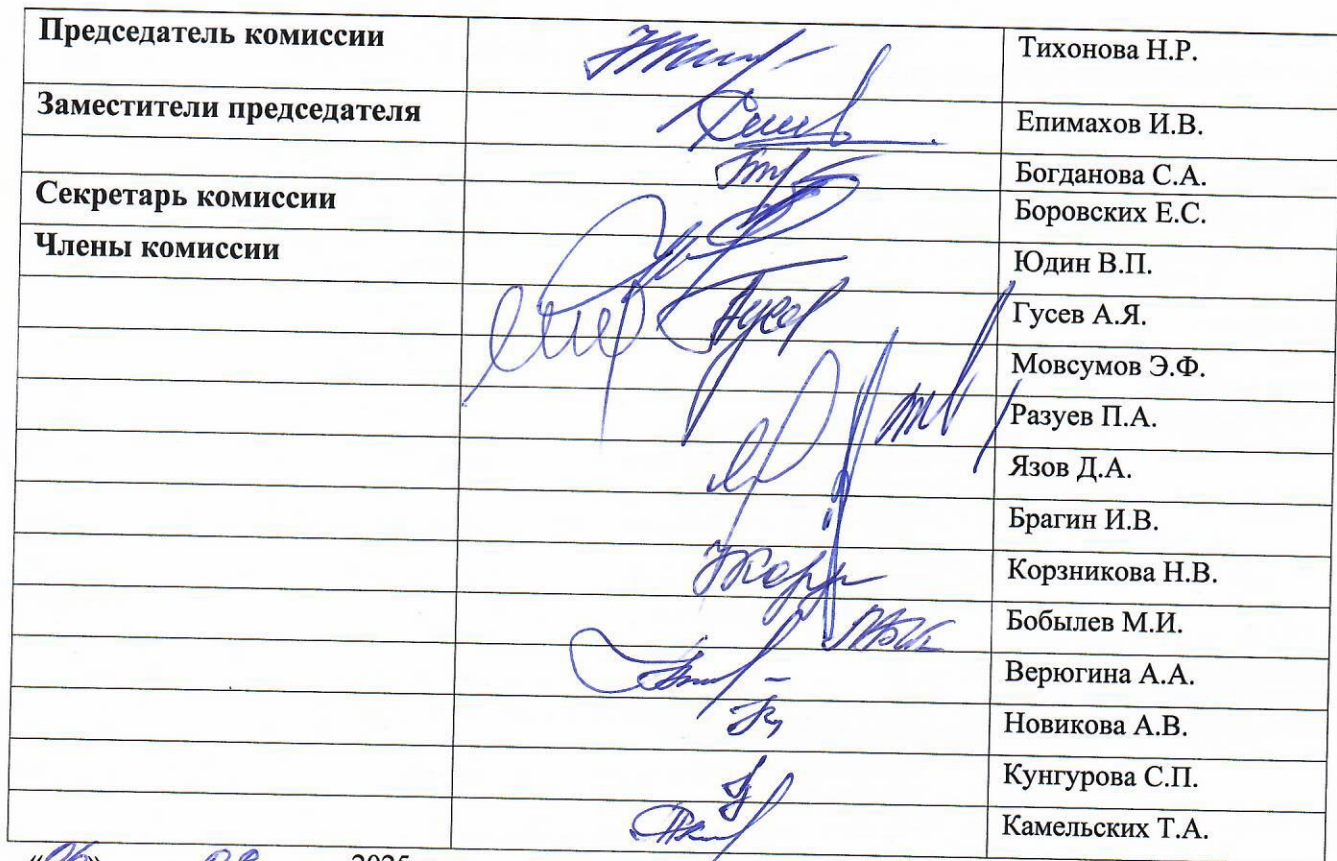 Председатель комиссии Тихонова Н.Р.
Заместители председателя Епимахов И.В.
Богданова С.А.
Секретарь комиссии Боровских Е.С.
Члены комиссии Юдин В.П.
Гусев А.Я.
Мовсумов Э.Ф.
Разуев П.А.
Язов Д.А.
Брагин И.В.
Корзникова Н.В.
Бобылев М.И.
Верюгина А.А.
Новикова А.В.
Кунгурова С.П.
Камельских Т.А.
2025